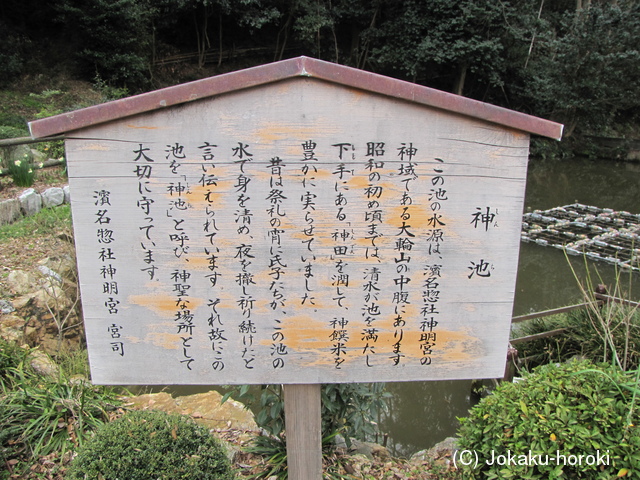 神池
しん
じ
この池の水源は、濱名惣社神明宮の
神域である大輪山の中腹にあります
昭和の初め頃までは、清水が池を満たし
下手にある「神田」を潤して、神饌米を
豊かに実らせていました。
昔は祭礼の宵に氏子たちが、この池の
水で身を清め、夜を撤し祈り続けたと
言い伝えられています。それ故にこの
池を「神池」と呼び、神聖な場所として
大切に守っています。
濱名惣社神明宮 宮司
(C) Jokaku-horoki